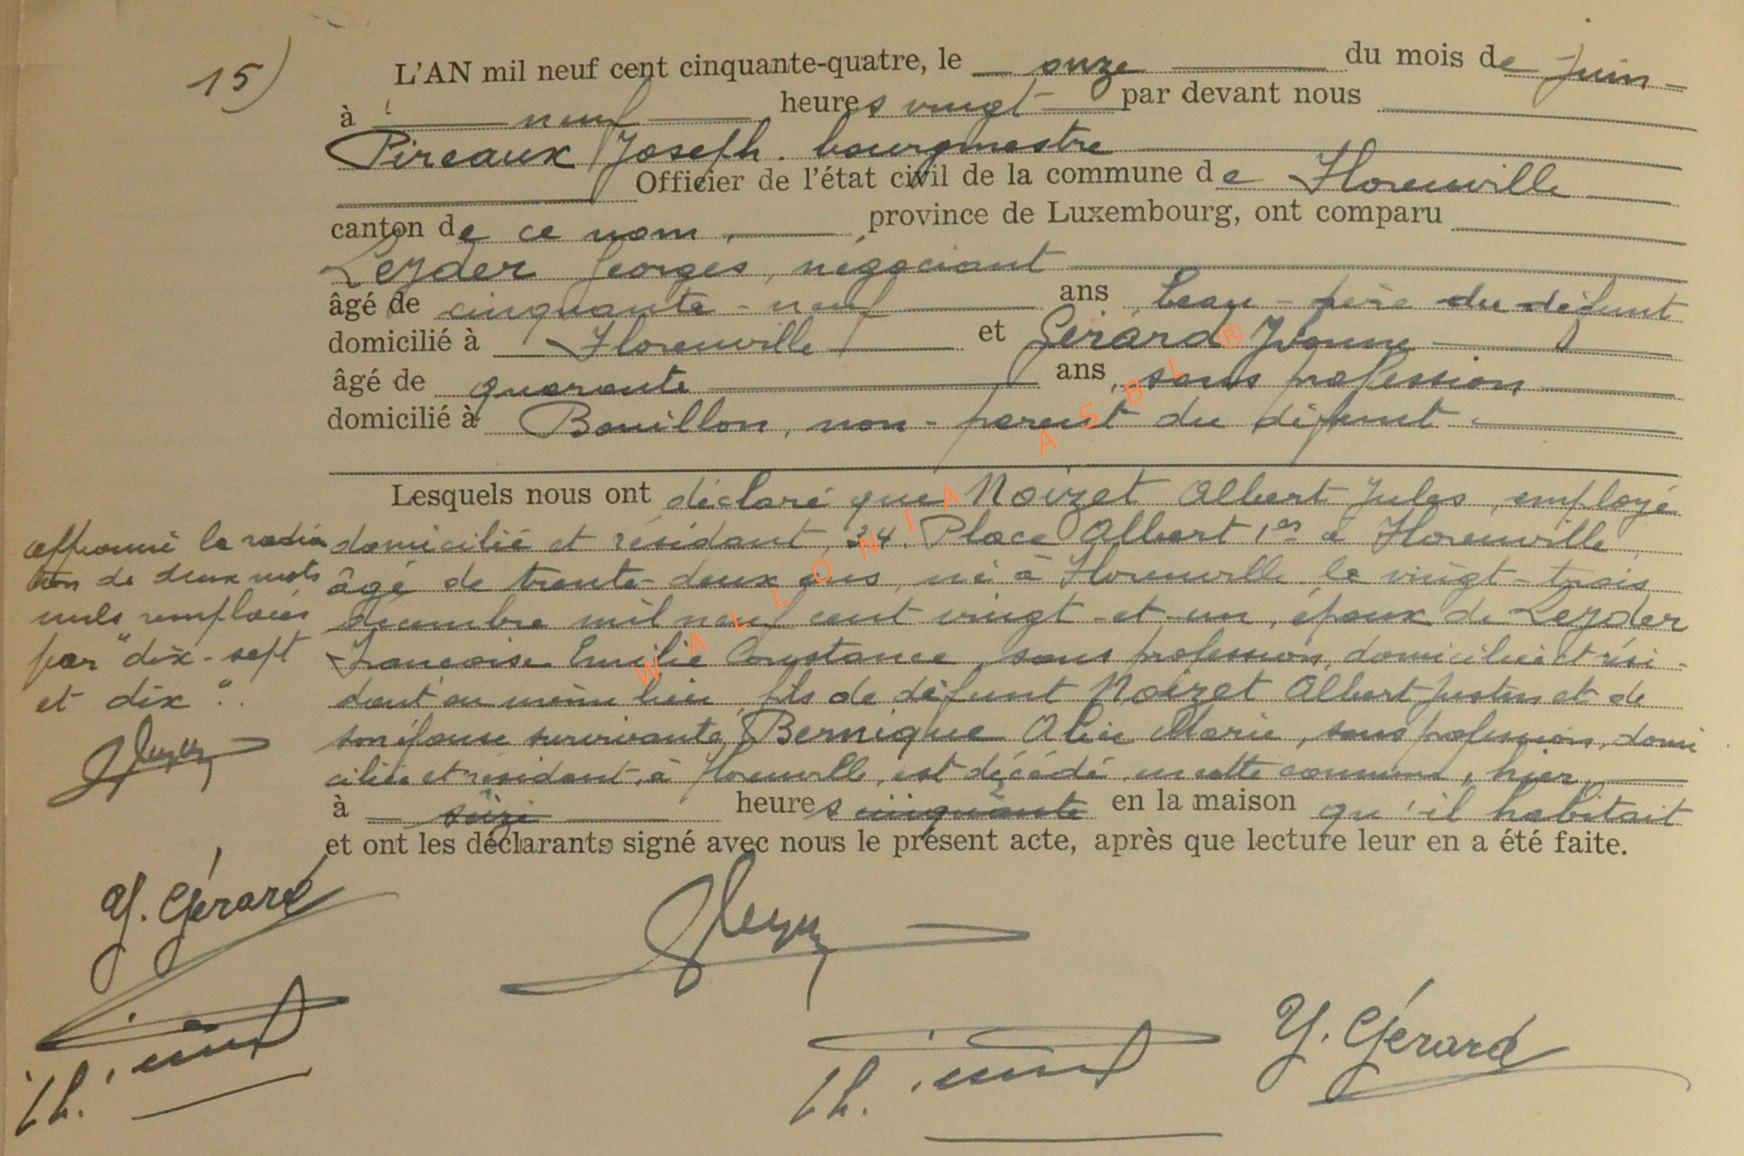 15)
L'AN mil neuf cent cinquante-quatre, le onze du mois de juin
à neuf heures vingt par devant nous
Pireaux Joseph. bourgmestre
Officier de l'état civil de la commune de Florenville
canton de ce nom, province de Luxembourg, ont comparu
Leyder Georges, négociant
âgé de cinquante-neuf ans, beau-père du défunt
domicilié à Florenville et Gérard Yvonne
âgé de quarante ans, sans profession
domicilié à Bouillon, non-parent du défunt
Lesquels nous ont déclaré que Noizet Albert Jules, employé
domicilié et résidant, 34. Place Albert 1er à Florenville,
âgé de trente-deux ans, né à Florenville le vingt-trois
décembre mil neuf cent vingt-et-un, époux de Leyder
Françoise Emilie Constance, sans profession, domiciliée et rési-
dant au même lieu, fils de défunt Noizet Albert Justin et de
son épouse survivante, Bernique Alice Marie, sans profession, domi
ciliée et résidant à Florenville, est décédé en cette commune, hier,
à seize heures cinquante en la maison qu'il habitait
et ont les déclarants signé avec nous le présent acte, après que lecture leur en a été faite.
approuvé la radia
tion de deux mots
nuls remplacés
par "dix-sept
et dix".
Y. Gérard
Y. Gérard
WALLONIA ASBL ®